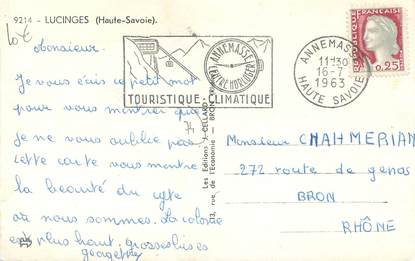 9214 - LUCINGES (Haute-Savoie).
10€
Monsieur.
Je vous écris ce petit mot
pour vous montrer que
je ne vous oublie pas
cette carte vous montre
la beauté du gîte
où nous sommes. La colonie
est plus haut. grosses bises
georgette
ANNEMASSE
CENTRE HORLOGER
TOURISTIQUE - CLIMATIQUE
ANNEMASSE
11H30
16-7
1963
HAUTE SAVOIE
FRANÇAISE
0,25
Les Editions J. CELLARD
rue de l'Economie - BRON
Monsieur CHAHMERIAN
272 route de genas
BRON
RHÔNE